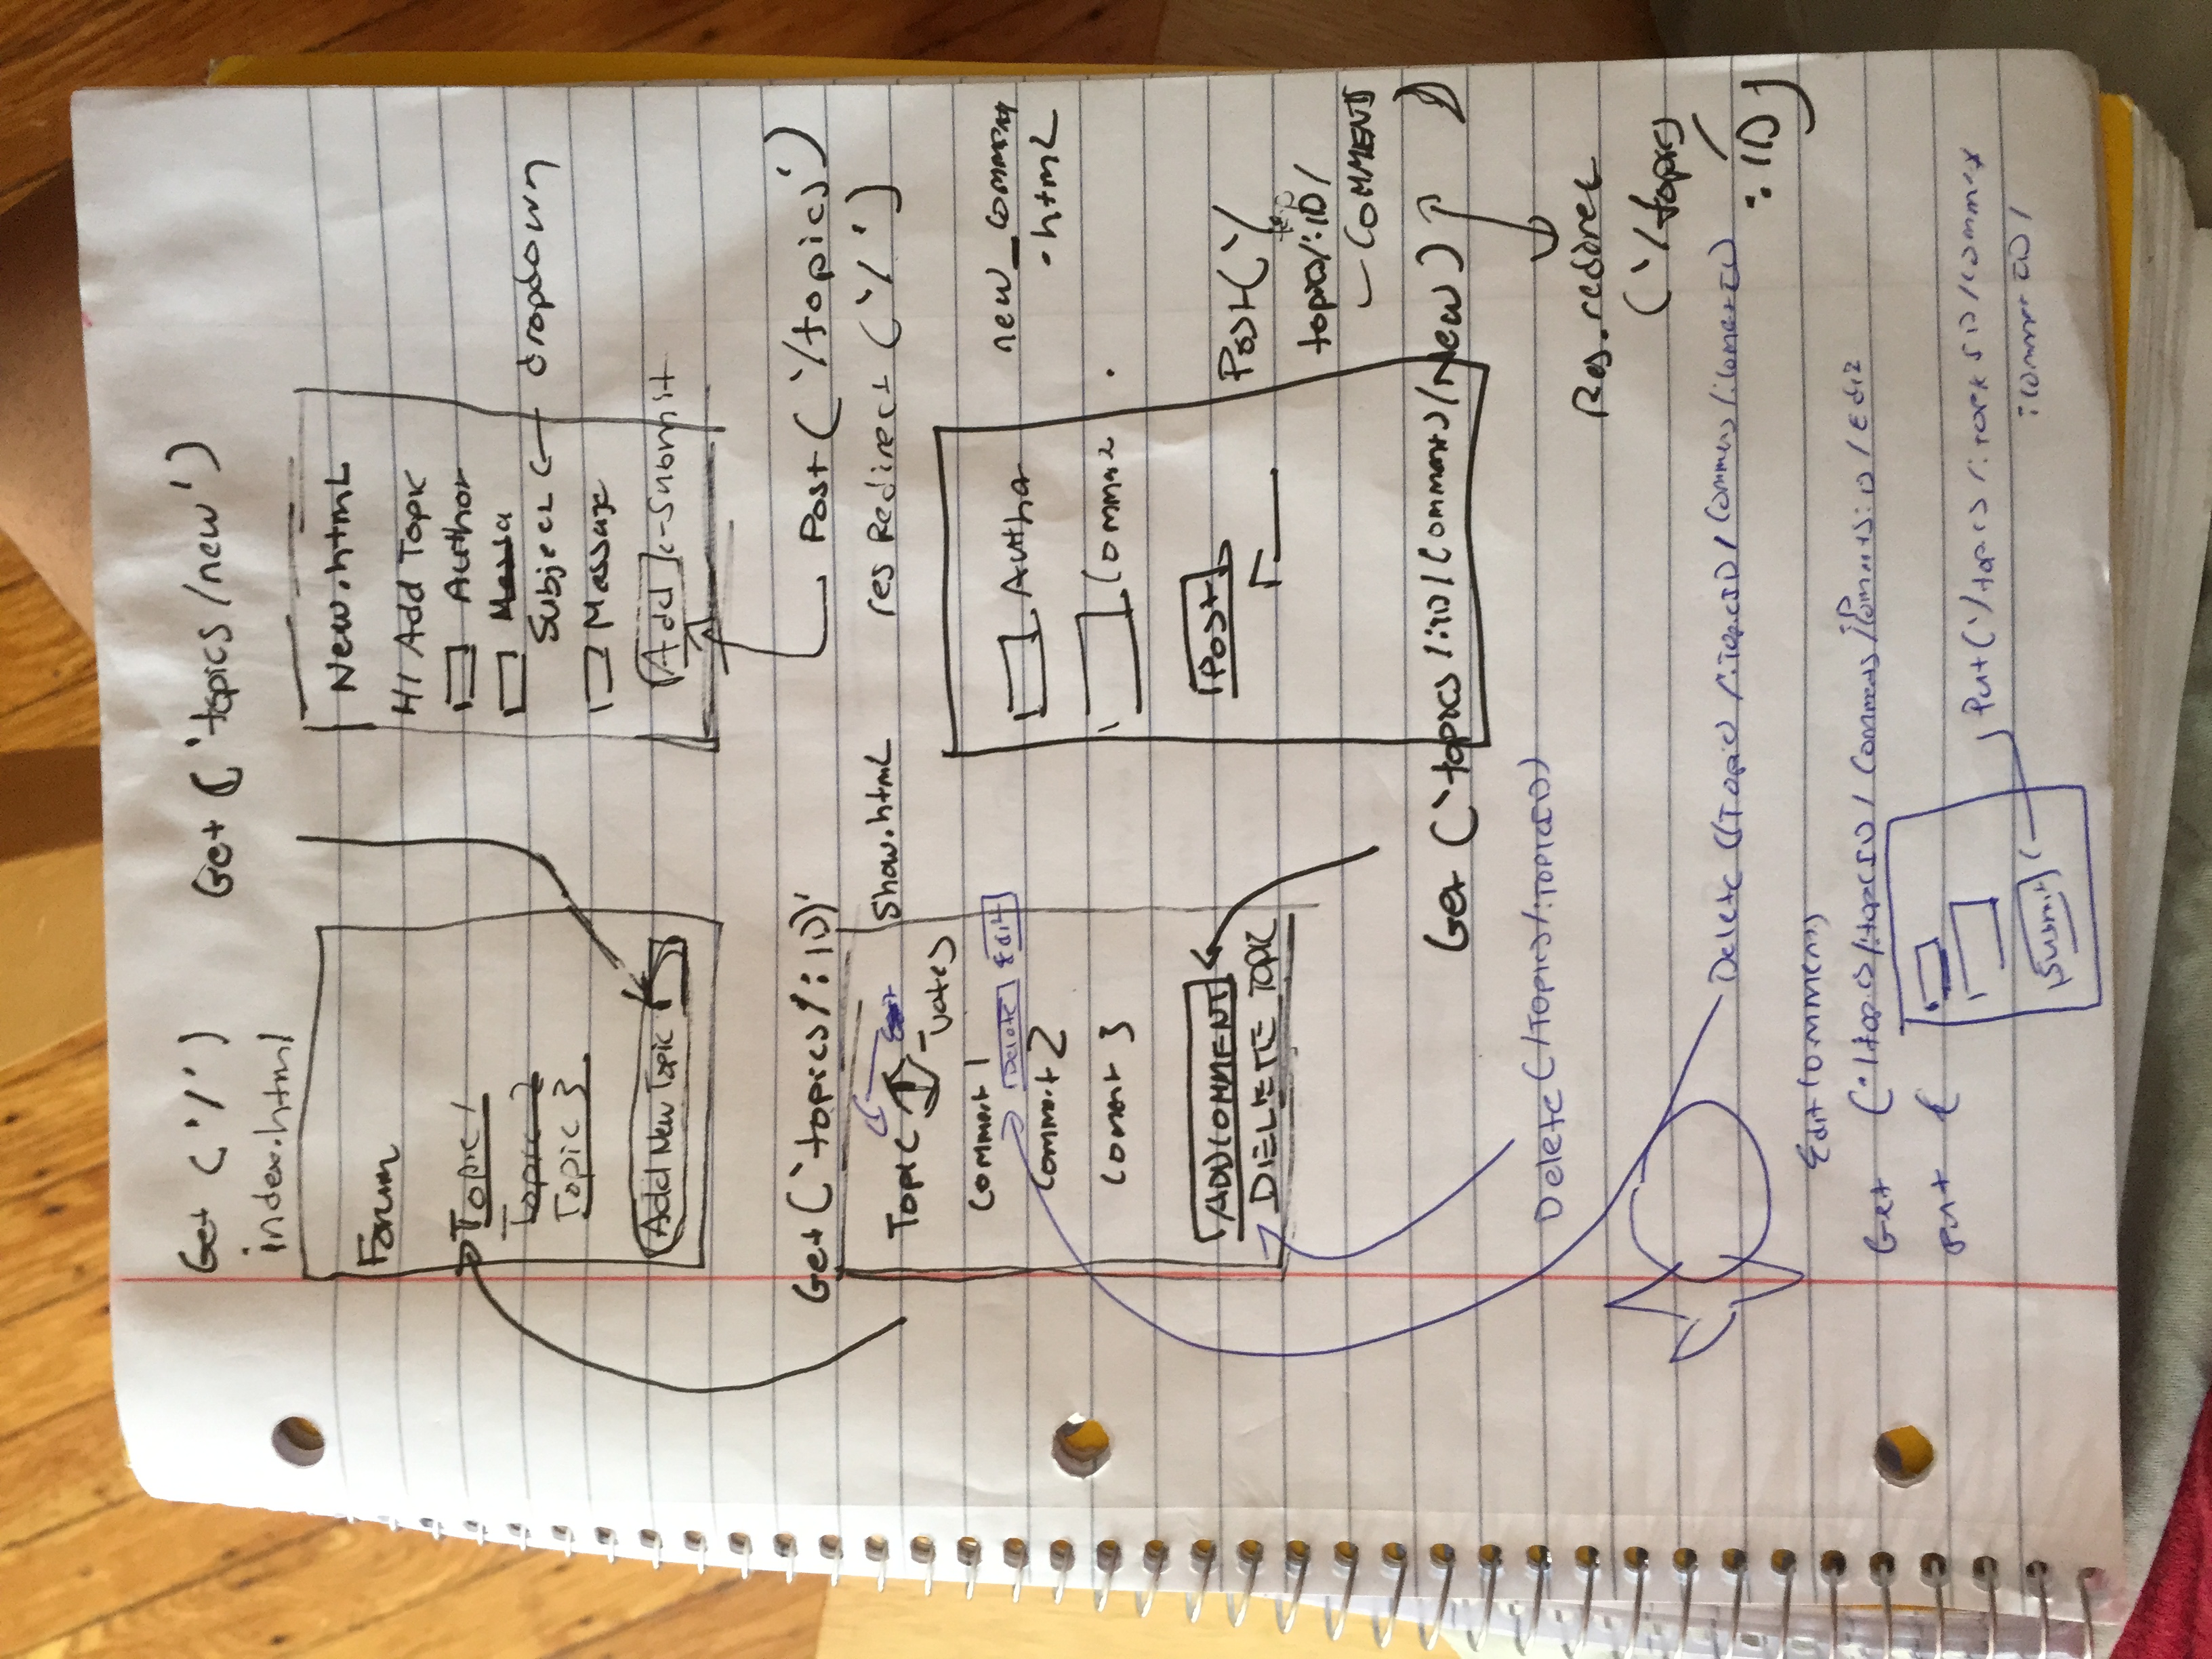 Get ('/')
index.html
Forum
Topic 1
Topic 2
Topic 3
Add New Topic
Get ('topics/new')
New.html
H1 Add Topic
Author
Subject
dropdown
Massage
Add
-Submit
Post ('/topics')
res Redirect ('/')
Get ('topics/:ID)'
show.html
Topic
- votes
Comment 1
Delete
Edit
Comment 2
Coment 3
ADD COMMENT
DIELETE TOPIC
new_comment
.html
Author
Post
Post('/
topics/:ID/
COMMENTS
Get ('topics/:ID/Comments/New')
Res.redirec
('/topics
:ID)
Delete (/Topics/:topicID)
Delete (/Topics/:TopicsID/Comments/:CommentID)
Edit Comments
Get ('/topics/:topicsID/Comments/:CommentsID/Edit
Put (
Submit
Put ('/topics/:topicsID/Comment
:CommentID)